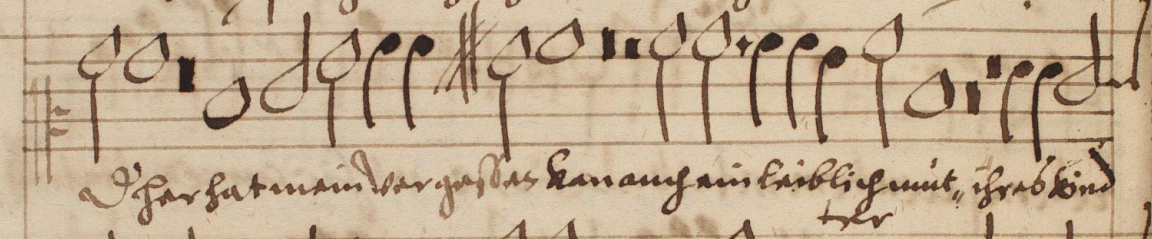 D' her hat mein vergessen kan auch ein leiblich mut„ ihres kind
ter